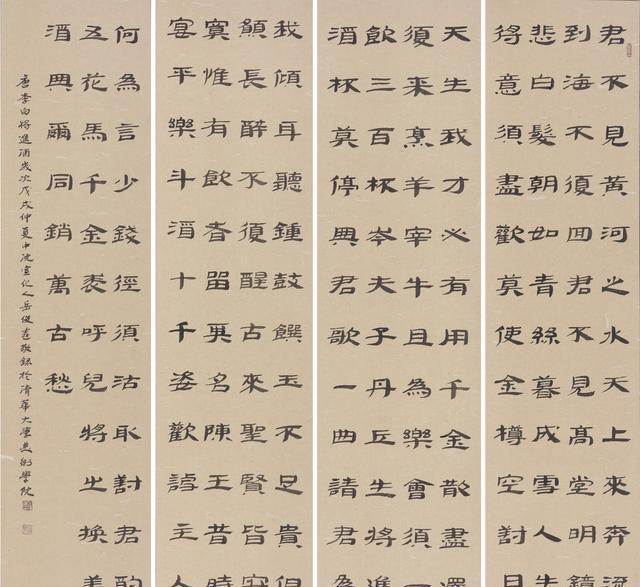 君不見黃河之水天上來奔流
到海不須回君不見高堂明鏡
悲白髮朝如青絲暮成雪人生
得意須盡歡莫使金樽空對月
天生我才必有用千金散盡還
須來烹羊宰牛且為樂會須一
飲三百杯岑夫子丹丘生將進
酒杯莫停與君歌一曲請君為
我傾耳聽鍾鼓饌玉不足貴但
願長醉不須醒古來聖賢皆寂
寞惟有飲者留其名陳王昔時
宴平樂斗酒十千恣歡謔主人
何為言少錢徑須沽取對君酌
五花馬千金裘呼兒將出換美
酒與爾同銷萬古愁
唐李白將進酒歲次戊戌仲夏中宣化人岳俊於清華大學美術學院